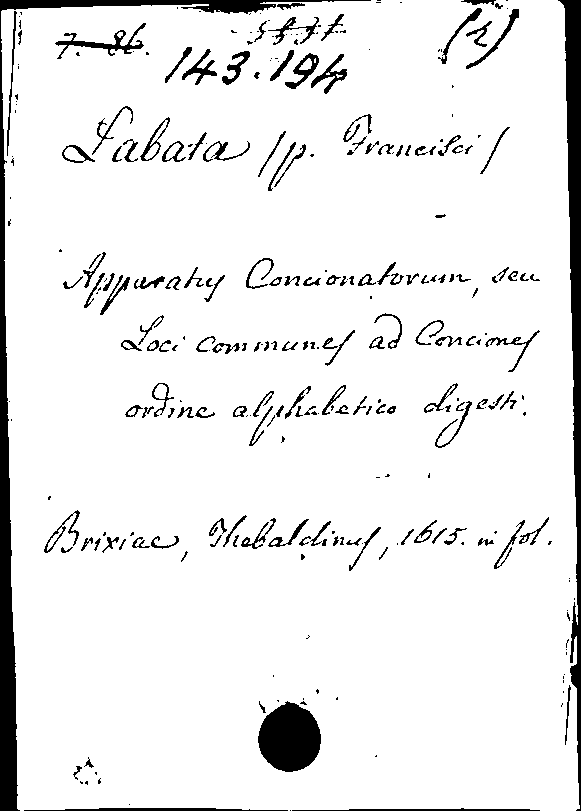 7. 86. (2)
143.194
Labata /p. Francisci/
Apparatus Concionatorum, seu
Loci communes ad Conciones
ordine alphabetico digesti.
Brixiae, Thebaldinus, 1615. in fol.